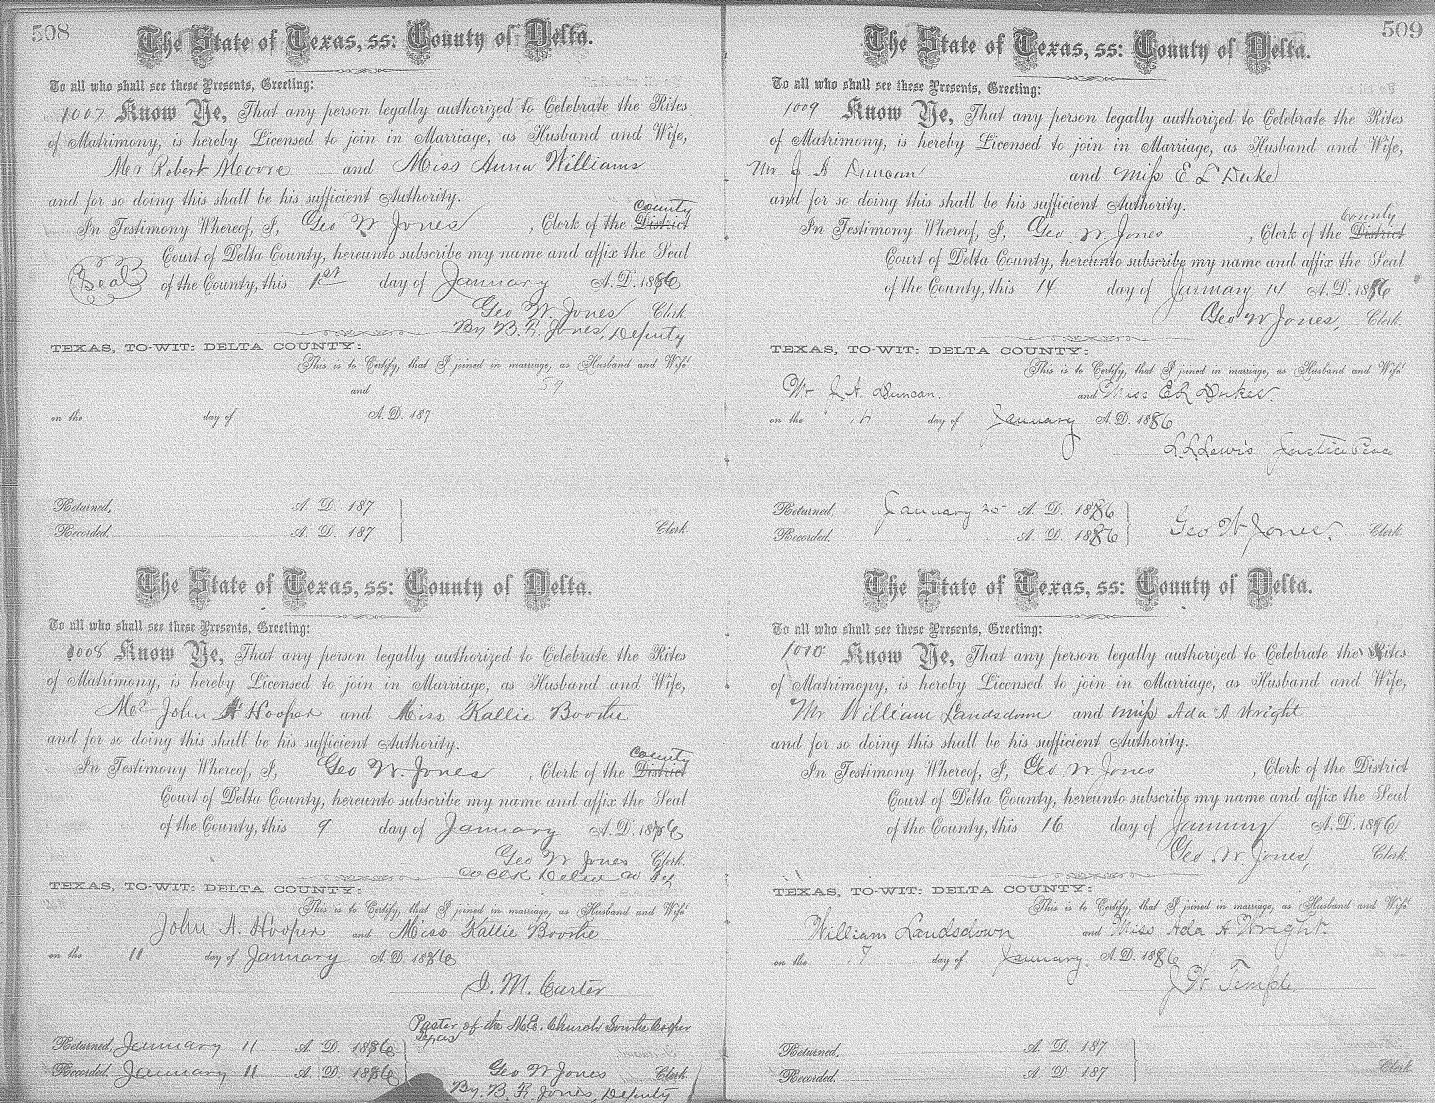 508
The State of Texas, ss: County of Delta.
To all who shall see these Presents, Greeting:
1007 Know Ye, That any person legally authorized to Celebrate the Rites
of Matrimony, is hereby Licensed to join in Marriage, as Husband and Wife,
Mr Robert Moore and Miss Anna Williams
and for so doing this shall be his sufficient Authority.
County
In Testimony Whereof, I, Geo W Jones, Clerk of the District
Court of Delta County, hereunto subscribe my name and affix the Seal
Seal of the County, this 1st day of January A. D. 1886
Geo W Jones Clerk
By B. R. Jones, Deputy
TEXAS, TO-WIT: DELTA COUNTY:
This is to Certify, that I joined in marriage, as Husband and Wife
and
on the day of A. D. 187
Returned, A. D. 187
Recorded. A. D. 187 Clerk
The State of Texas, ss: County of Delta.
To all who shall see these Presents, Greeting:
1008 Know Ye, That any person legally authorized to Celebrate the Rites
of Matrimony, is hereby Licensed to join in Marriage, as Husband and Wife,
Mr John A Hooper and Miss Kallie Boostie
and for so doing this shall be his sufficient Authority.
County
In Testimony Whereof, I, Geo W. Jones, Clerk of the District
Court of Delta County, hereunto subscribe my name and affix the Seal
of the County, this 9 day of January A. D. 1886
Geo W Jones Clerk.
TEXAS, TO-WIT: DELTA COUNTY:
This is to Certify, that I joined in marriage, as Husband and Wife
John A. Hooper and Miss Kallie Boostie
on the 11 day of January A. D. 1886
I. M. Carter
Paster of the M. E. Church South Cooper
Texas
Returned, January 11 A. D. 1886
Recorded. January 11 A. D. 1886 Geo W Jones Clerk
By. B. R. Jones, Deputy
509
The State of Texas, ss: County of Delta.
To all who shall see these Presents, Greeting:
1009 Know Ye, That any person legally authorized to Celebrate the Rites
of Matrimony, is hereby Licensed to join in Marriage, as Husband and Wife,
Mr J A Duncan and Miss E L Duke
and for so doing this shall be his sufficient Authority.
County
In Testimony Whereof, I, Geo W Jones, Clerk of the District
Court of Delta County, hereunto subscribe my name and affix the Seal
of the County, this 14 day of January 14 A. D. 1886
Geo W Jones, Clerk.
TEXAS, TO-WIT: DELTA COUNTY:
This is to Certify, that I joined in marriage, as Husband and Wife
Mr J. A. Duncan. and Miss E L Dukes
on the 14 day of January A. D. 1886
L. L. Lewis Justice Peac
Returned. January 20 A. D. 1886
Recorded. A. D. 1886 Geo W Jones. Clerk
The State of Texas, ss: County of Delta.
To all who shall see these Presents, Greeting:
1010 Know Ye, That any person legally authorized to Celebrate the Rites
of Matrimony, is hereby Licensed to join in Marriage, as Husband and Wife,
Mr William Landsdown and Miss Ada A Wright
and for so doing this shall be his sufficient Authority.
In Testimony Whereof, I, Geo W Jones, Clerk of the District
Court of Delta County, hereunto subscribe my name and affix the Seal
of the County, this 16 day of January A. D. 1886
Geo. W Jones Clerk
TEXAS, TO-WIT: DELTA COUNTY:
This is to Certify, that I joined in marriage, as Husband and Wife
William Landsdown and Miss Ada A Wright.
on the 17 day of January. A. D. 1886
J W Temple
Returned, A. D. 187
Recorded. A. D. 187 Clerk